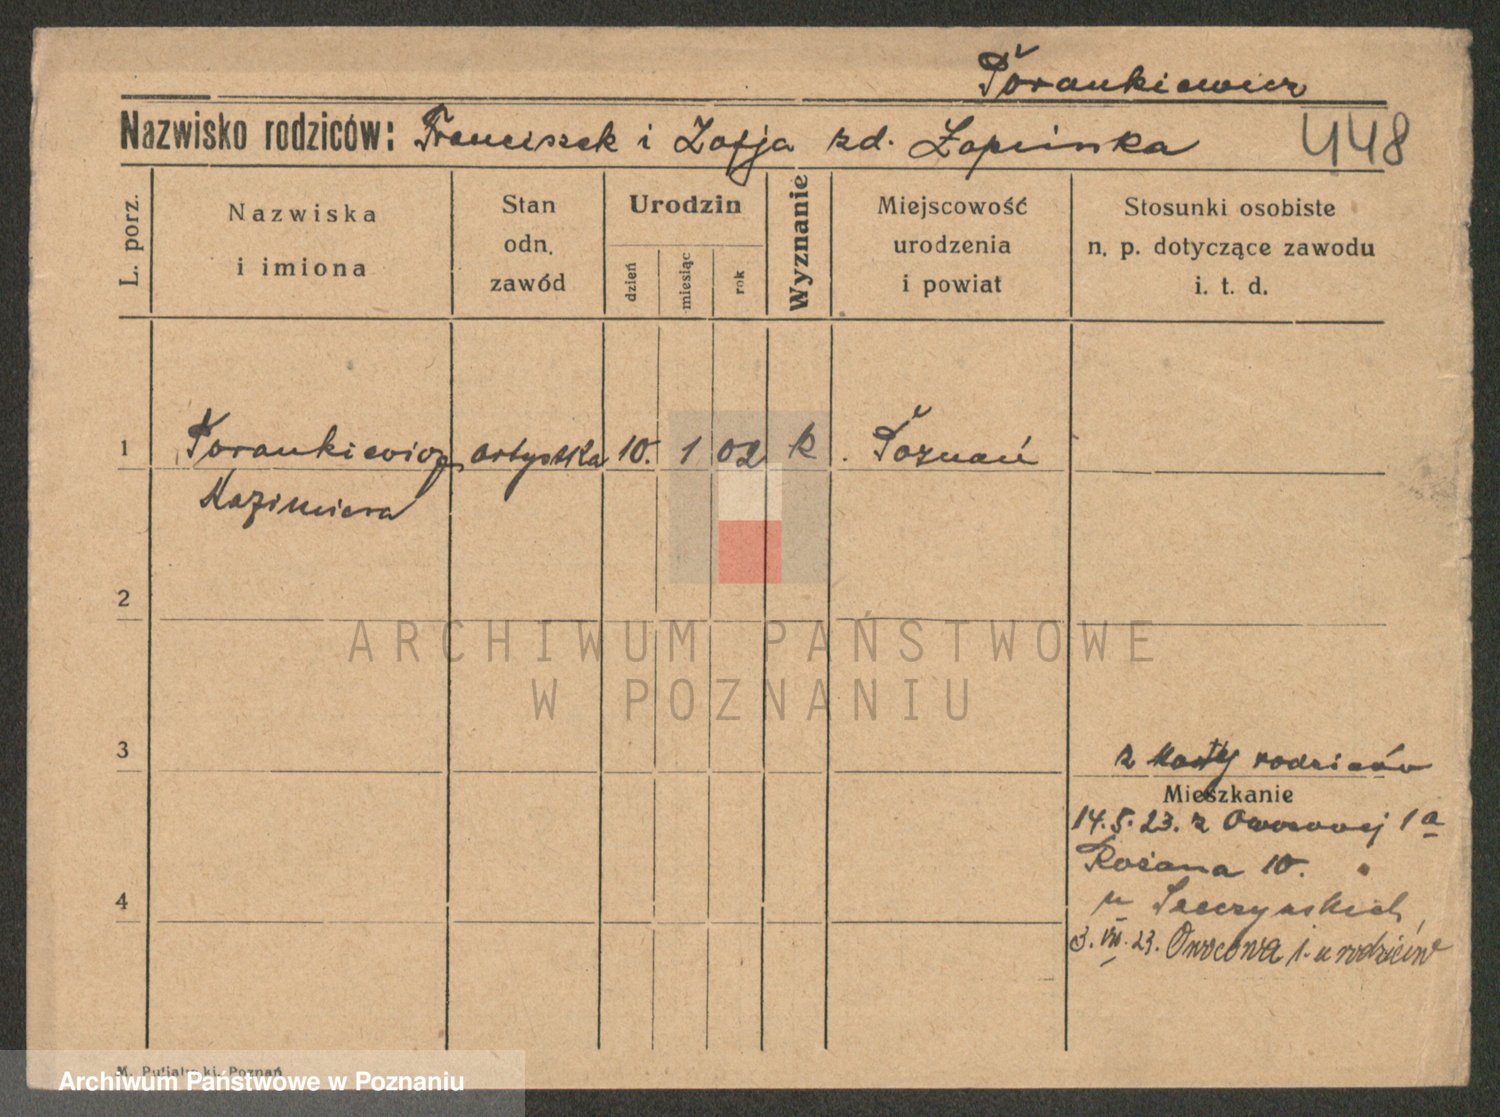 Porankiewicz
Nazwisko rodziców: Franciszek i Zofja zd. Łapinska
448
L. porz.
Nazwiska
i imiona
Stan
odn.
zawód
Urodzin
dzień
miesiąc
rok
Wyznanie
Miejscowość
urodzenia
i powiat
Stosunki osobiste
n. p. dotyczące zawodu
i. t. d.
1
Porankiewicz artystka 10. 1 02 k. Poznań
Kazimiera
2
ARCHIWUM PAŃSTWOWE
W POZNANIU
3
z karty rodziców
Mieszkanie
14.5.23. z Owocowej 1a
Różana 10.
4
u
3.VII.23. Owocowa 1. u rodziców
M. Putiatycki, Poznań
Archiwum Państwowe w Poznaniu